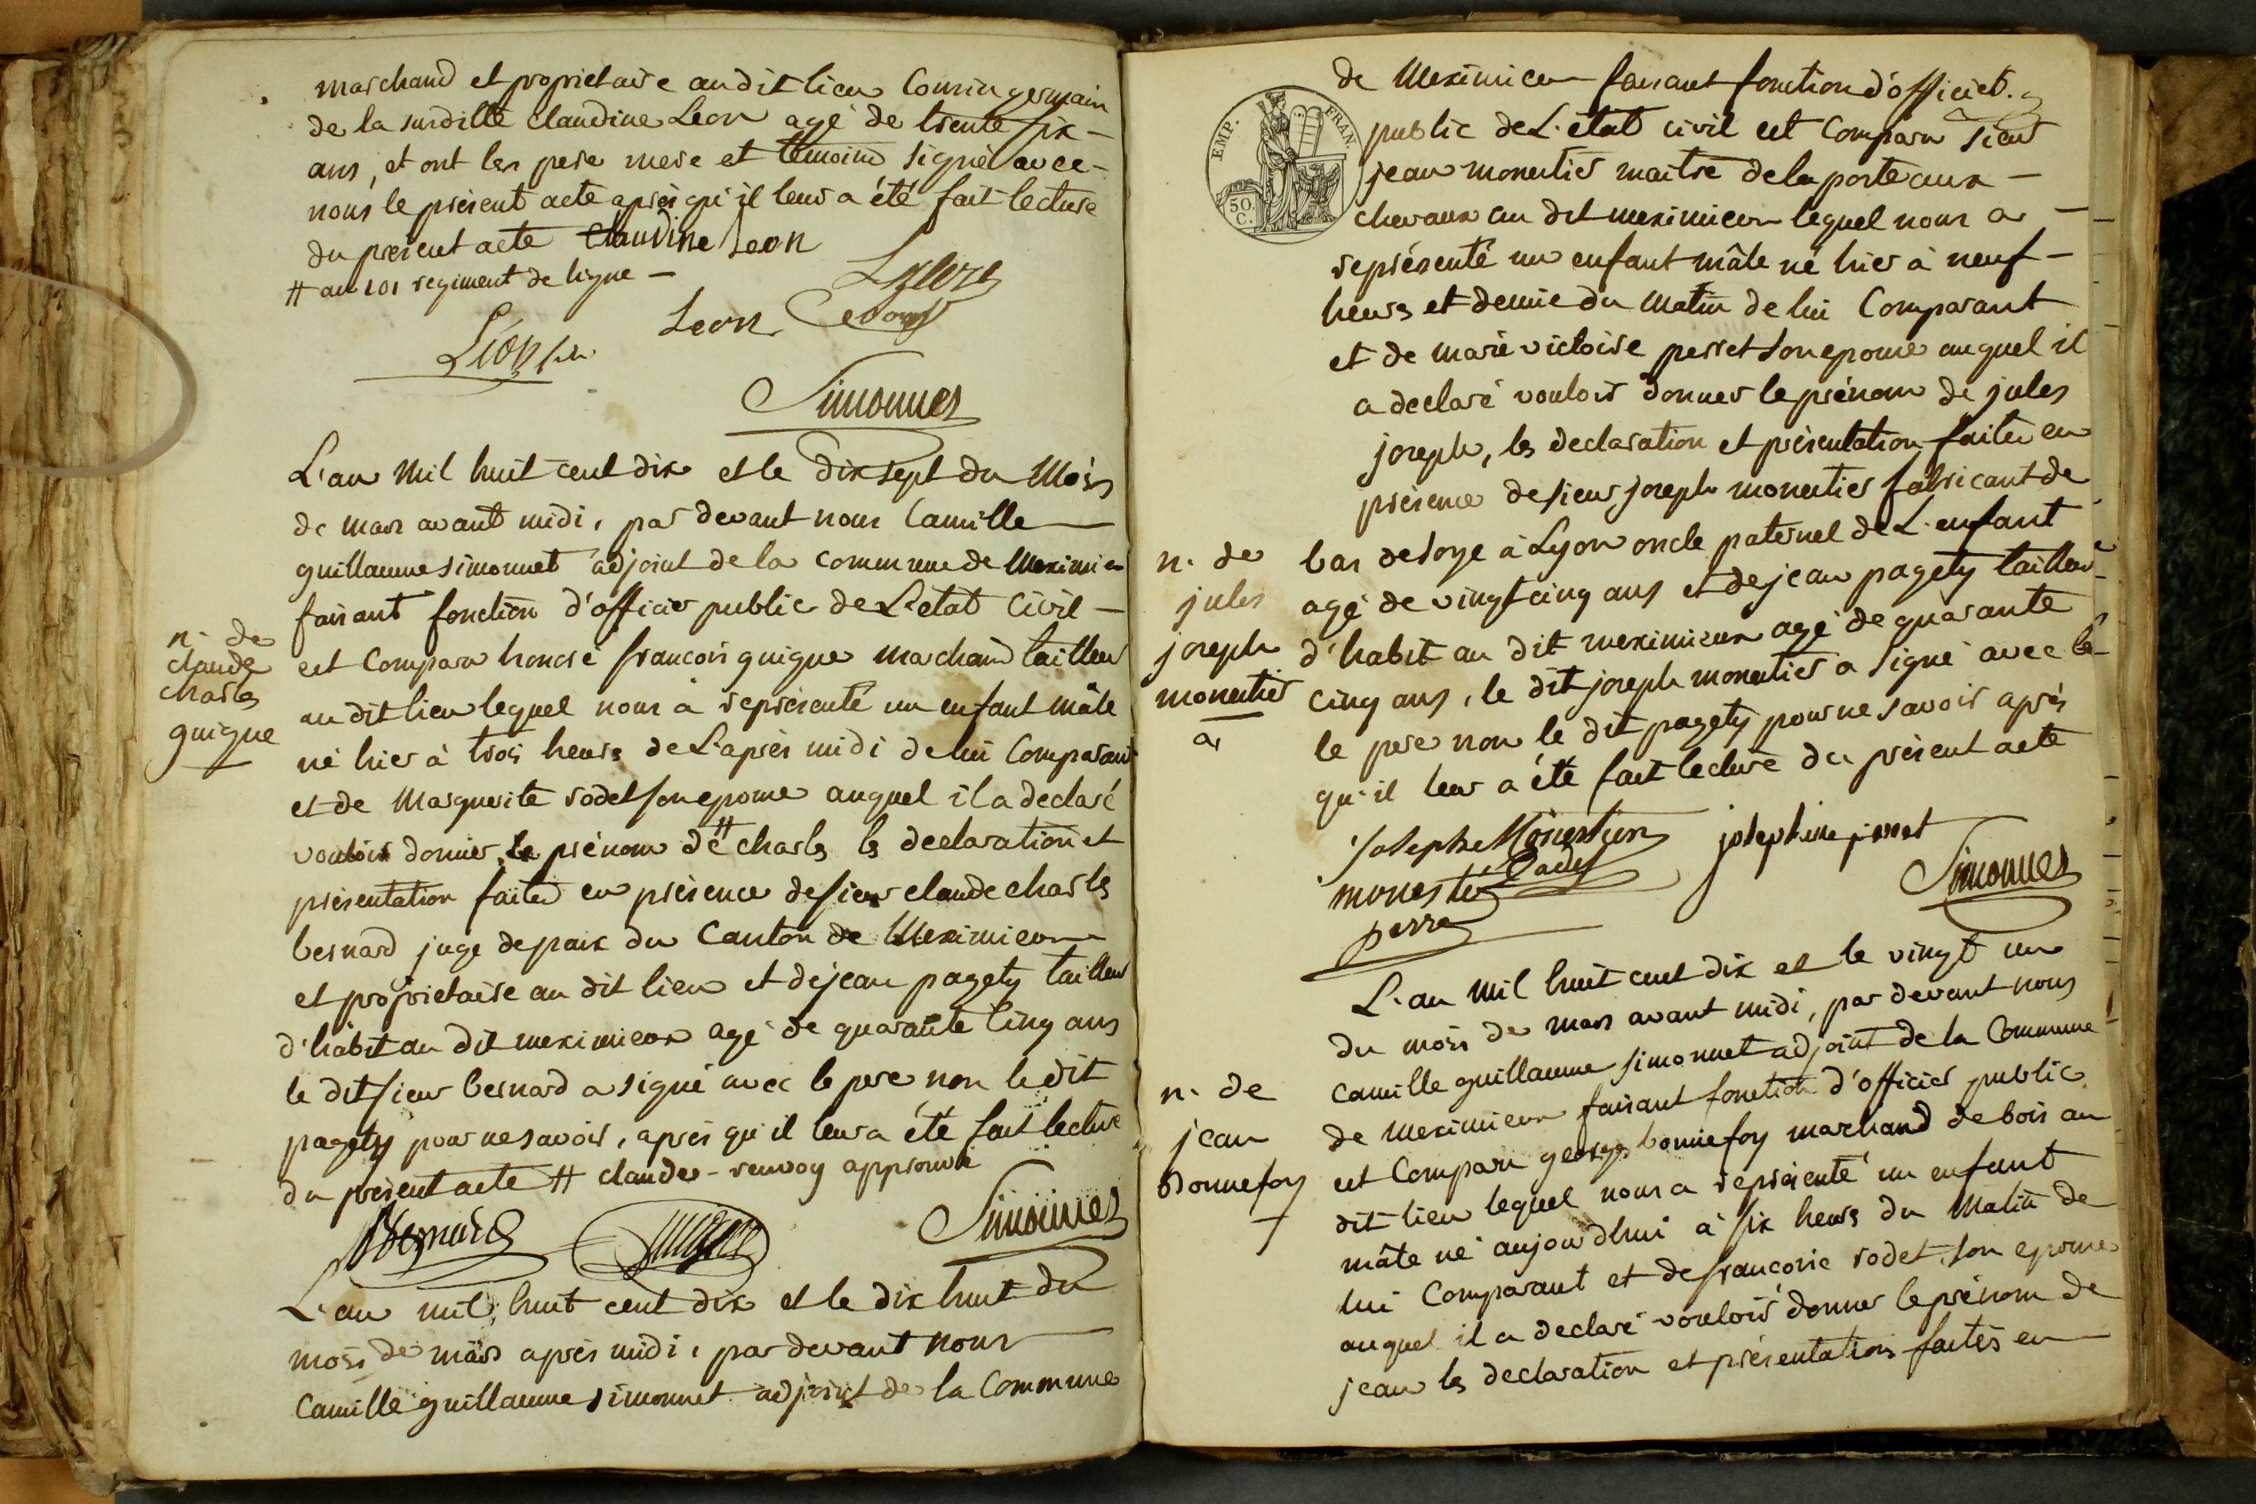 marchand et proprietaire audit lieu Cousin germain
de la surditte Claudine Leon agé de trente six -
ans, et ont les pere mere et temoins signé avec -
nous le présent acte après qu'il leur a été fait lecture
du présent acte Claudine Leon
# au 101 regiment de ligne -
Leon
Léon
Simonnet
L'an mil huit cent dix et le dix sept du Mois
de mars avant midi, par devant nous Camille
guillaume simonnet adjoint de la commune de Meximieux
faisant fonction d'officier public de L'état Civil -
n. de
claude
charles
guigue
est Comparu honoré francois guigue marchand tailleur
au dit lieu lequel nous à représenté un enfant mâle
né hier à trois heures de L'après midi de lui Comparant
et de Marguerite rodet son epouse auquel il a declaré
vouloir donner le prénom de # charles les declaration et
présentation faites en présence de sieur claude charles
bernard juge de paix du Canton de Meximieux
et propriétaire au dit lieu et de jean pagety tailleur
d'habit au dit meximieux agé de quarante cinq ans
le dit sieur bernard a signé avec le pere non le dit
pagety pour ne savoir, après qu'il leur a été fait lecture
du présent acte # claude - renvoy approuvé
Bernard
Simonnet
L'an mil huit cent dix et le dix huit du
mois de mars après midi, par devant nous
Camille guillaume simonnet adjoint de la Commune
de Meximieux faisant fonction d'officier
EMP. FRAN.
50 C.
public de L'état civil est Comparu sieur
jean monestier maitre de la poste aux -
chevaux au dit meximieux lequel nous a -
représenté un enfant mâle né hier à neuf -
heures et demie du matin de lui Comparant
et de marie victoire perret son epouse auquel il
a declaré vouloir donner le prénom de jules
joseph, les declaration et présentation faites en
présence de sieur joseph monestier fabricant de
n. de
jules
joseph
monestier
bas de soye à Lyon oncle paternel de L'enfant
agé de vingt cinq ans et de jean pagety tailleur
d'habit au dit meximieux agé de quarante
cinq ans, le dit joseph monestier a signé avec le
le pere non le dit pagety pour ne savoir après
qu'il leur a été fait lecture du présent acte
Joseph Monestier
josephine perret
Simonnet
L'an mil huit cent dix et le vingt un
du mois de mars avant midi, par devant nous
Camille guillaume simonnet adjoint de la Commune
de meximieux faisant fonction d'officier public
n. de
jean
bonnefoy
est Comparu george bonnefoy marchand de bois au
dit lieu lequel nous a représenté un enfant
mâle né aujourdhui à six heures du Matin de
lui Comparant et de francoise rodet son epouse
auquel il a declaré vouloir donner le prénom de
jean les declaration et présentations faites en